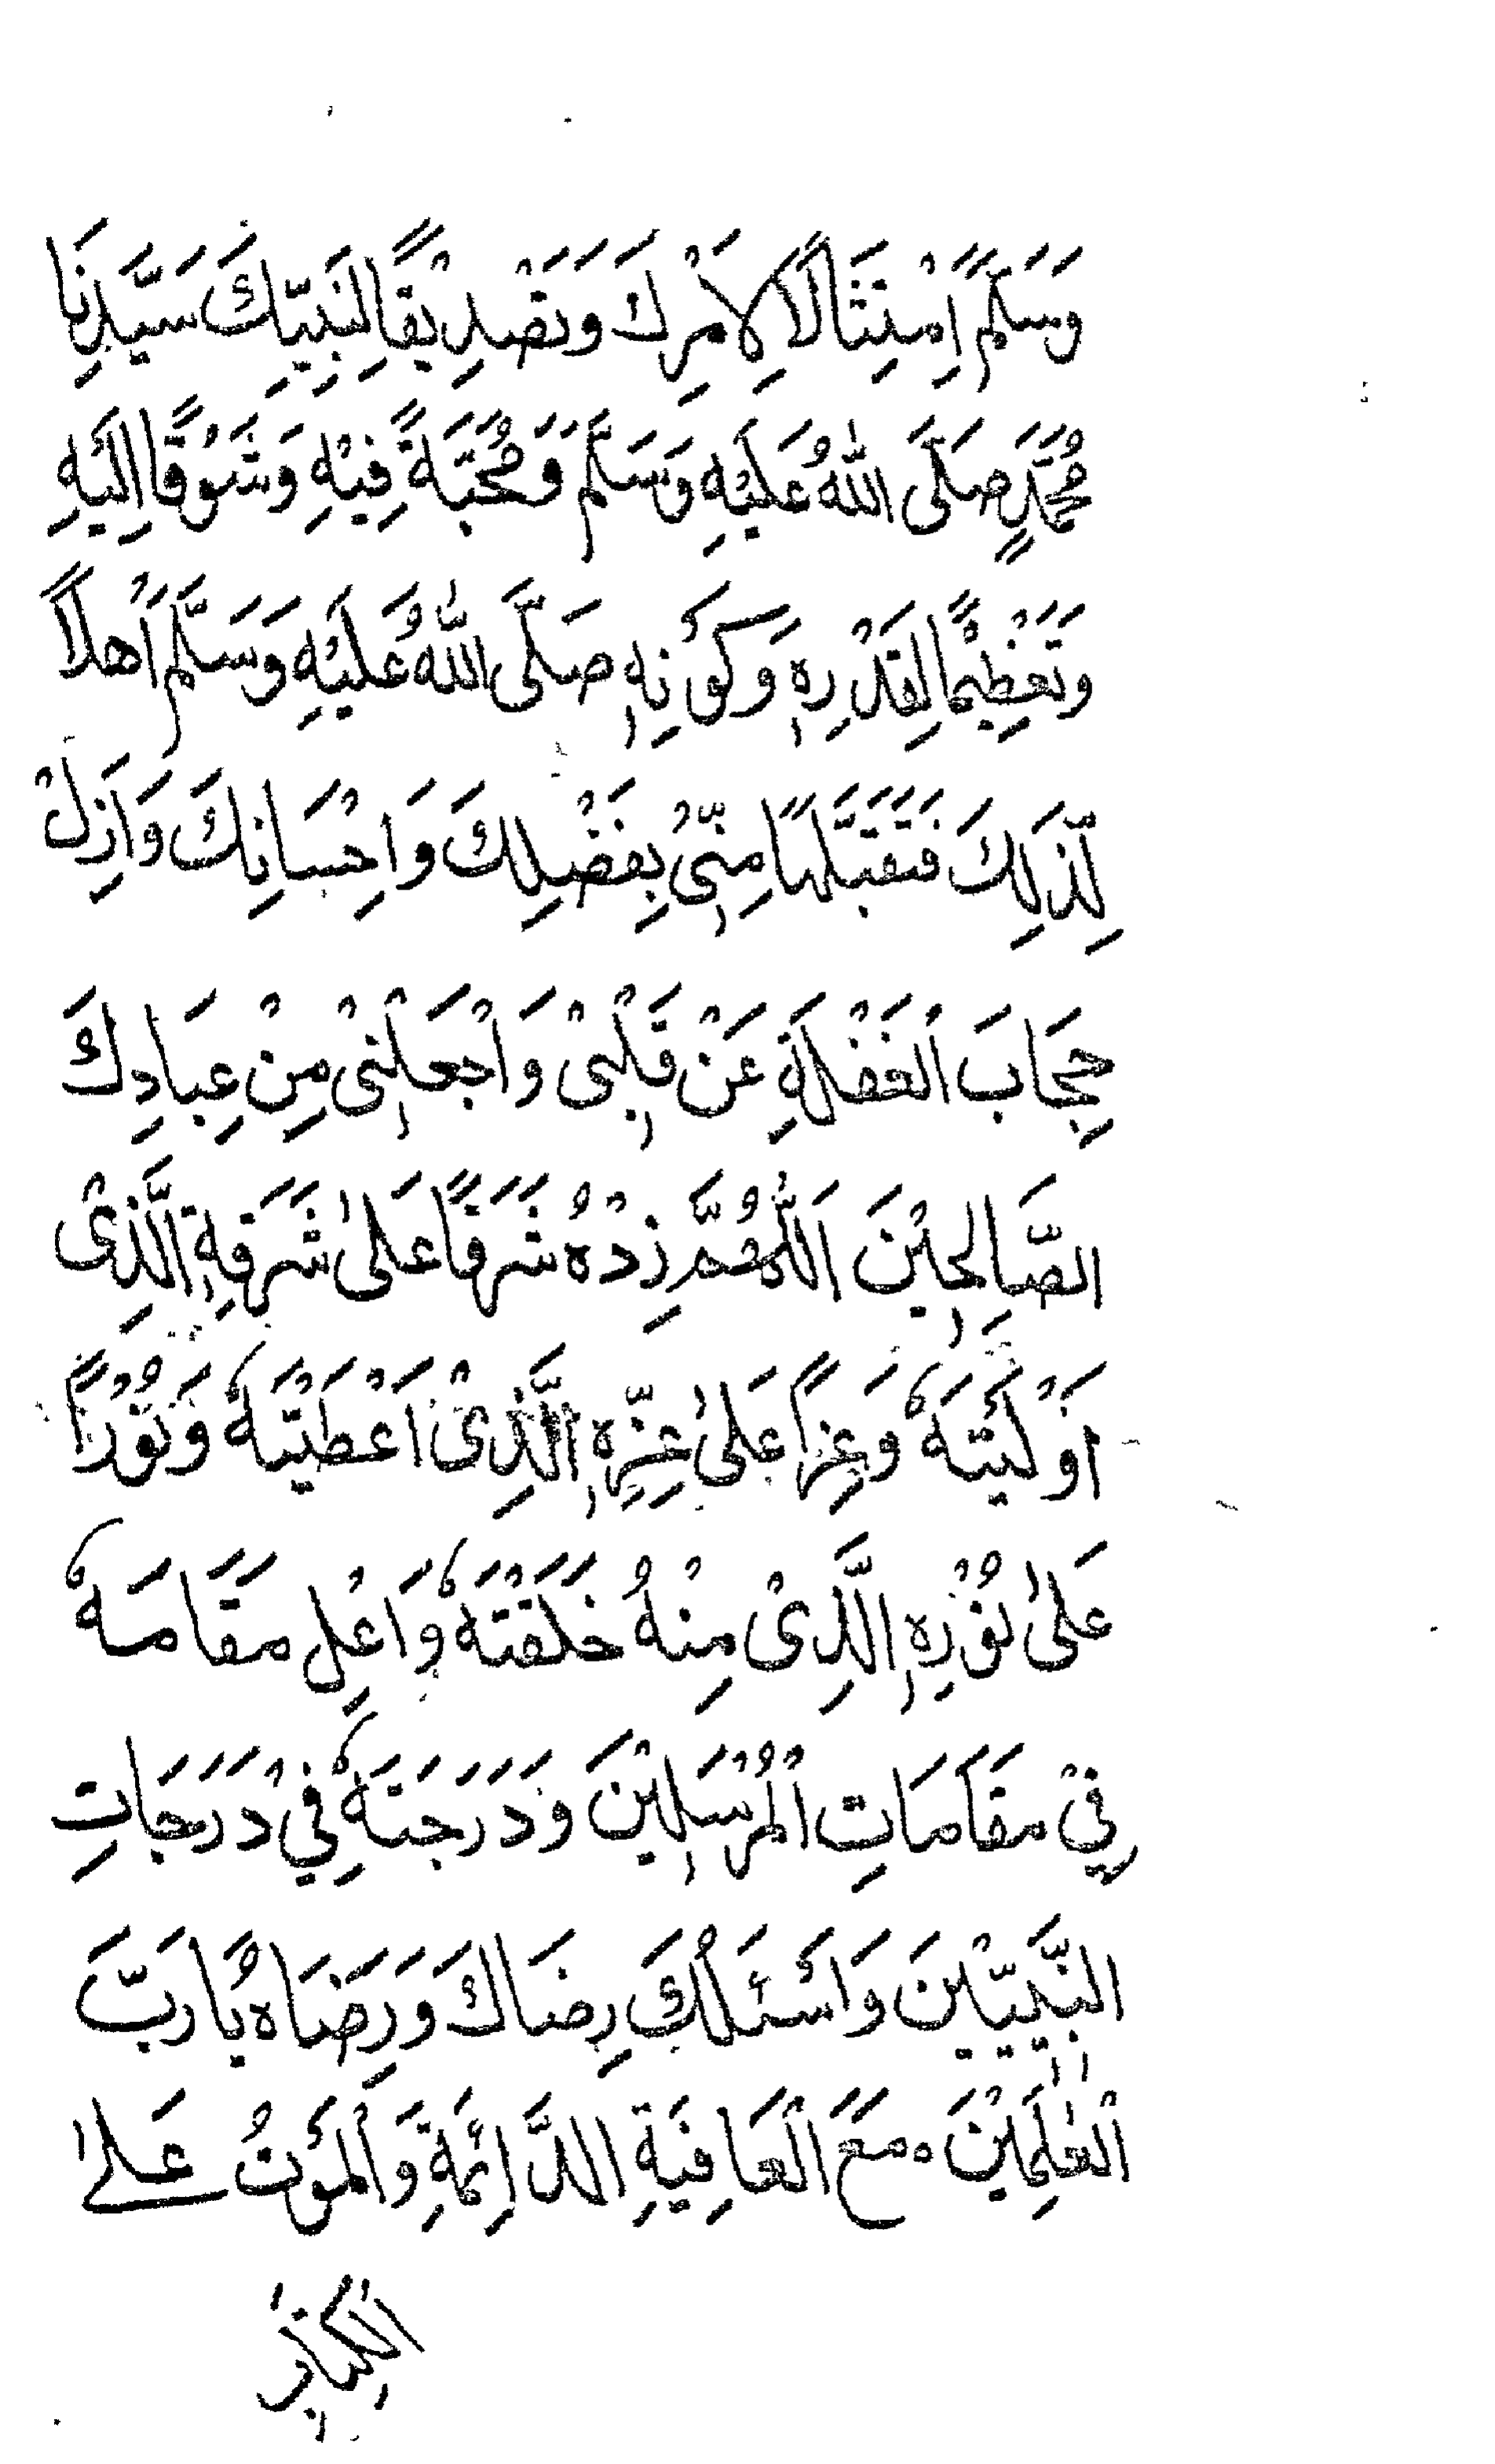 وَسَلَّمَ اِمْتِثَالًا لِاَمْرِكَ وَتَصْدِيْقًا لِنَبِيِّكَ سَيِّدِنَا
مُحَمَّدٍ صَلَّى اللهُ عَلَيْهِ وَسَلَّمَ وَمُحَبَّةً فِيْهِ وَشَوْقًا اِلَيْهِ
وَتَعْظِيْمًا لِقَدْرِهٖ وَكَوْنِهٖ صَلَّى اللّٰهُ عَلَيْهِ وَسَلَّمَ اَهْلًا
لِذٰلِكَ فَتَقَبَّلْهَا مِنِّيْ بِفَضْلِكَ وَاِحْسَانِكَ وَاَزِلْ
حِجَابَ الْغَفْلَةِ عَنْ قَلْبِيْ وَاجْعَلْنِيْ مِنْ عِبَادِكَ
الصَّالِحِيْنَ اَللّٰهُمَّ زِدْهُ شَرَفًا عَلٰى شَرَفِهِ الَّذِىْ
اَوْلَيْتَهٗ وَعِزًّا عَلٰى عِزِّهِ الَّذِىْ اَعْطَيْتَهٗ وَنُوْرًا
عَلٰى نُوْرِهِ الَّذِىْ مِنْهُ خَلَقْتَهٗ وَاَعْلِ مَقَامَهٗ
فِيْ مَقَامَاتِ الْمُرْسَلِيْنَ وَدَرَجَتَهٗ فِيْ دَرَجَاتِ
النَّبِيِّيْنَ وَاَسْئَلُكَ رِضَاكَ وَرِضَاهُ يَا رَبَّ
الْعٰلَمِيْنَ ۰ مَعَ الْعَافِيَةِ الدَّائِمَةِ وَالْمَوْتُ عَلٰى
الْكِتَابِ